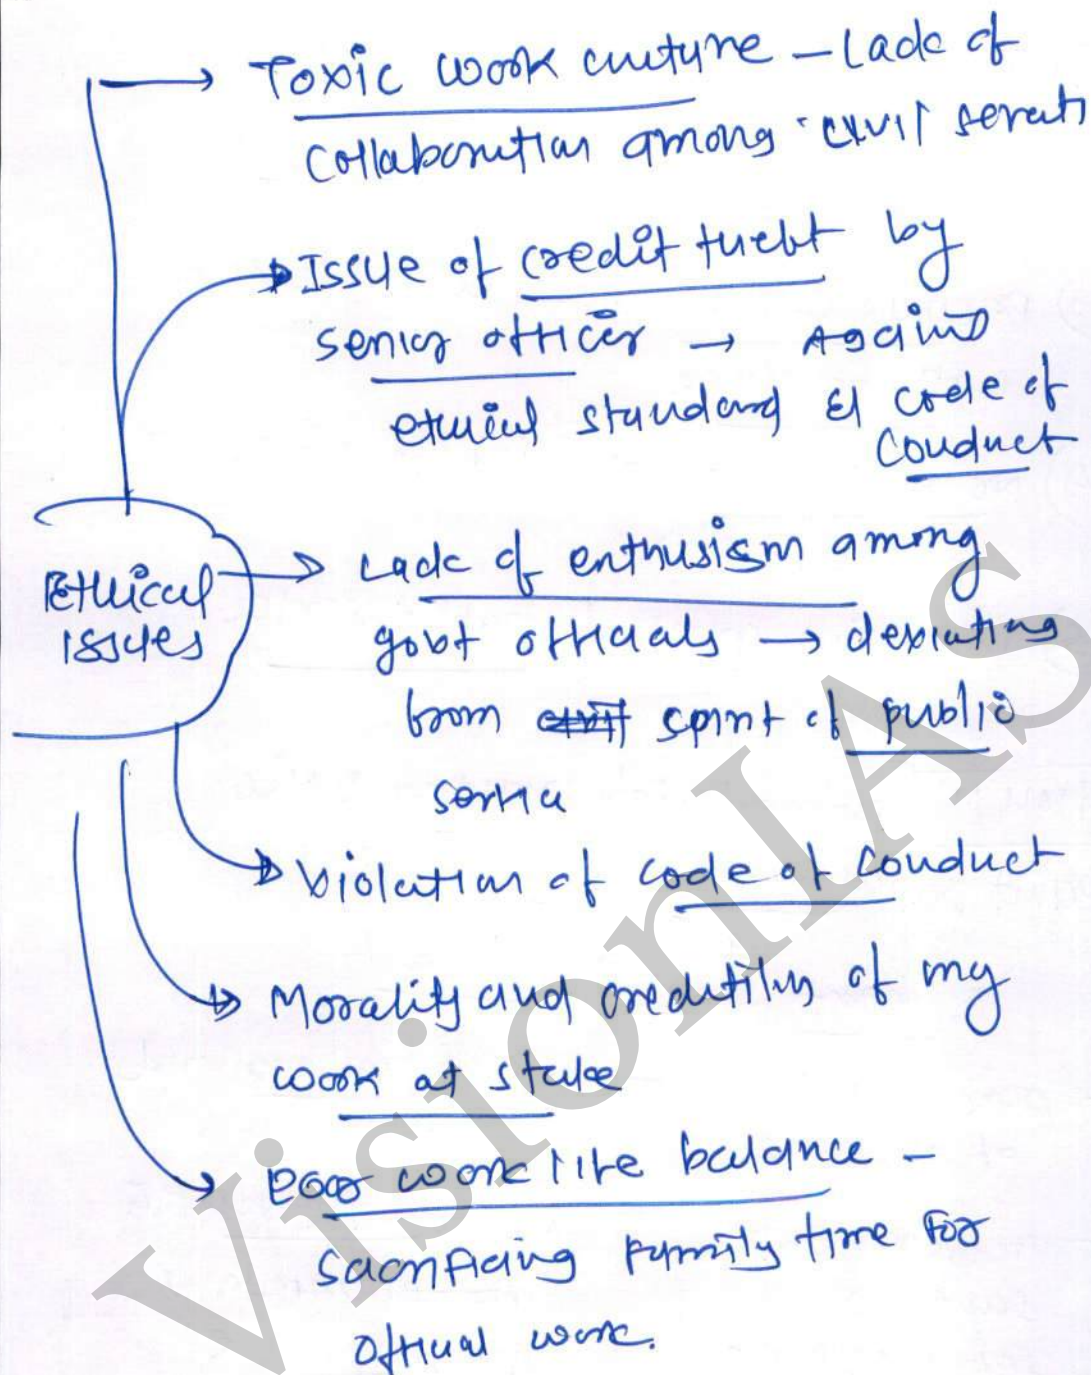 Toxic work culture – Lack of
collaboration among civil servants
Issue of credit theft by
senior officer → Against
ethical standard & code of
conduct
Ethical
issues
Lack of enthusism among
govt officials → deviating
from spirit of public
service
Violation of code of conduct
Morality and credibility of my
work at stake
Poor work life balance –
sacrificing family time for
official work.
VisionIAS